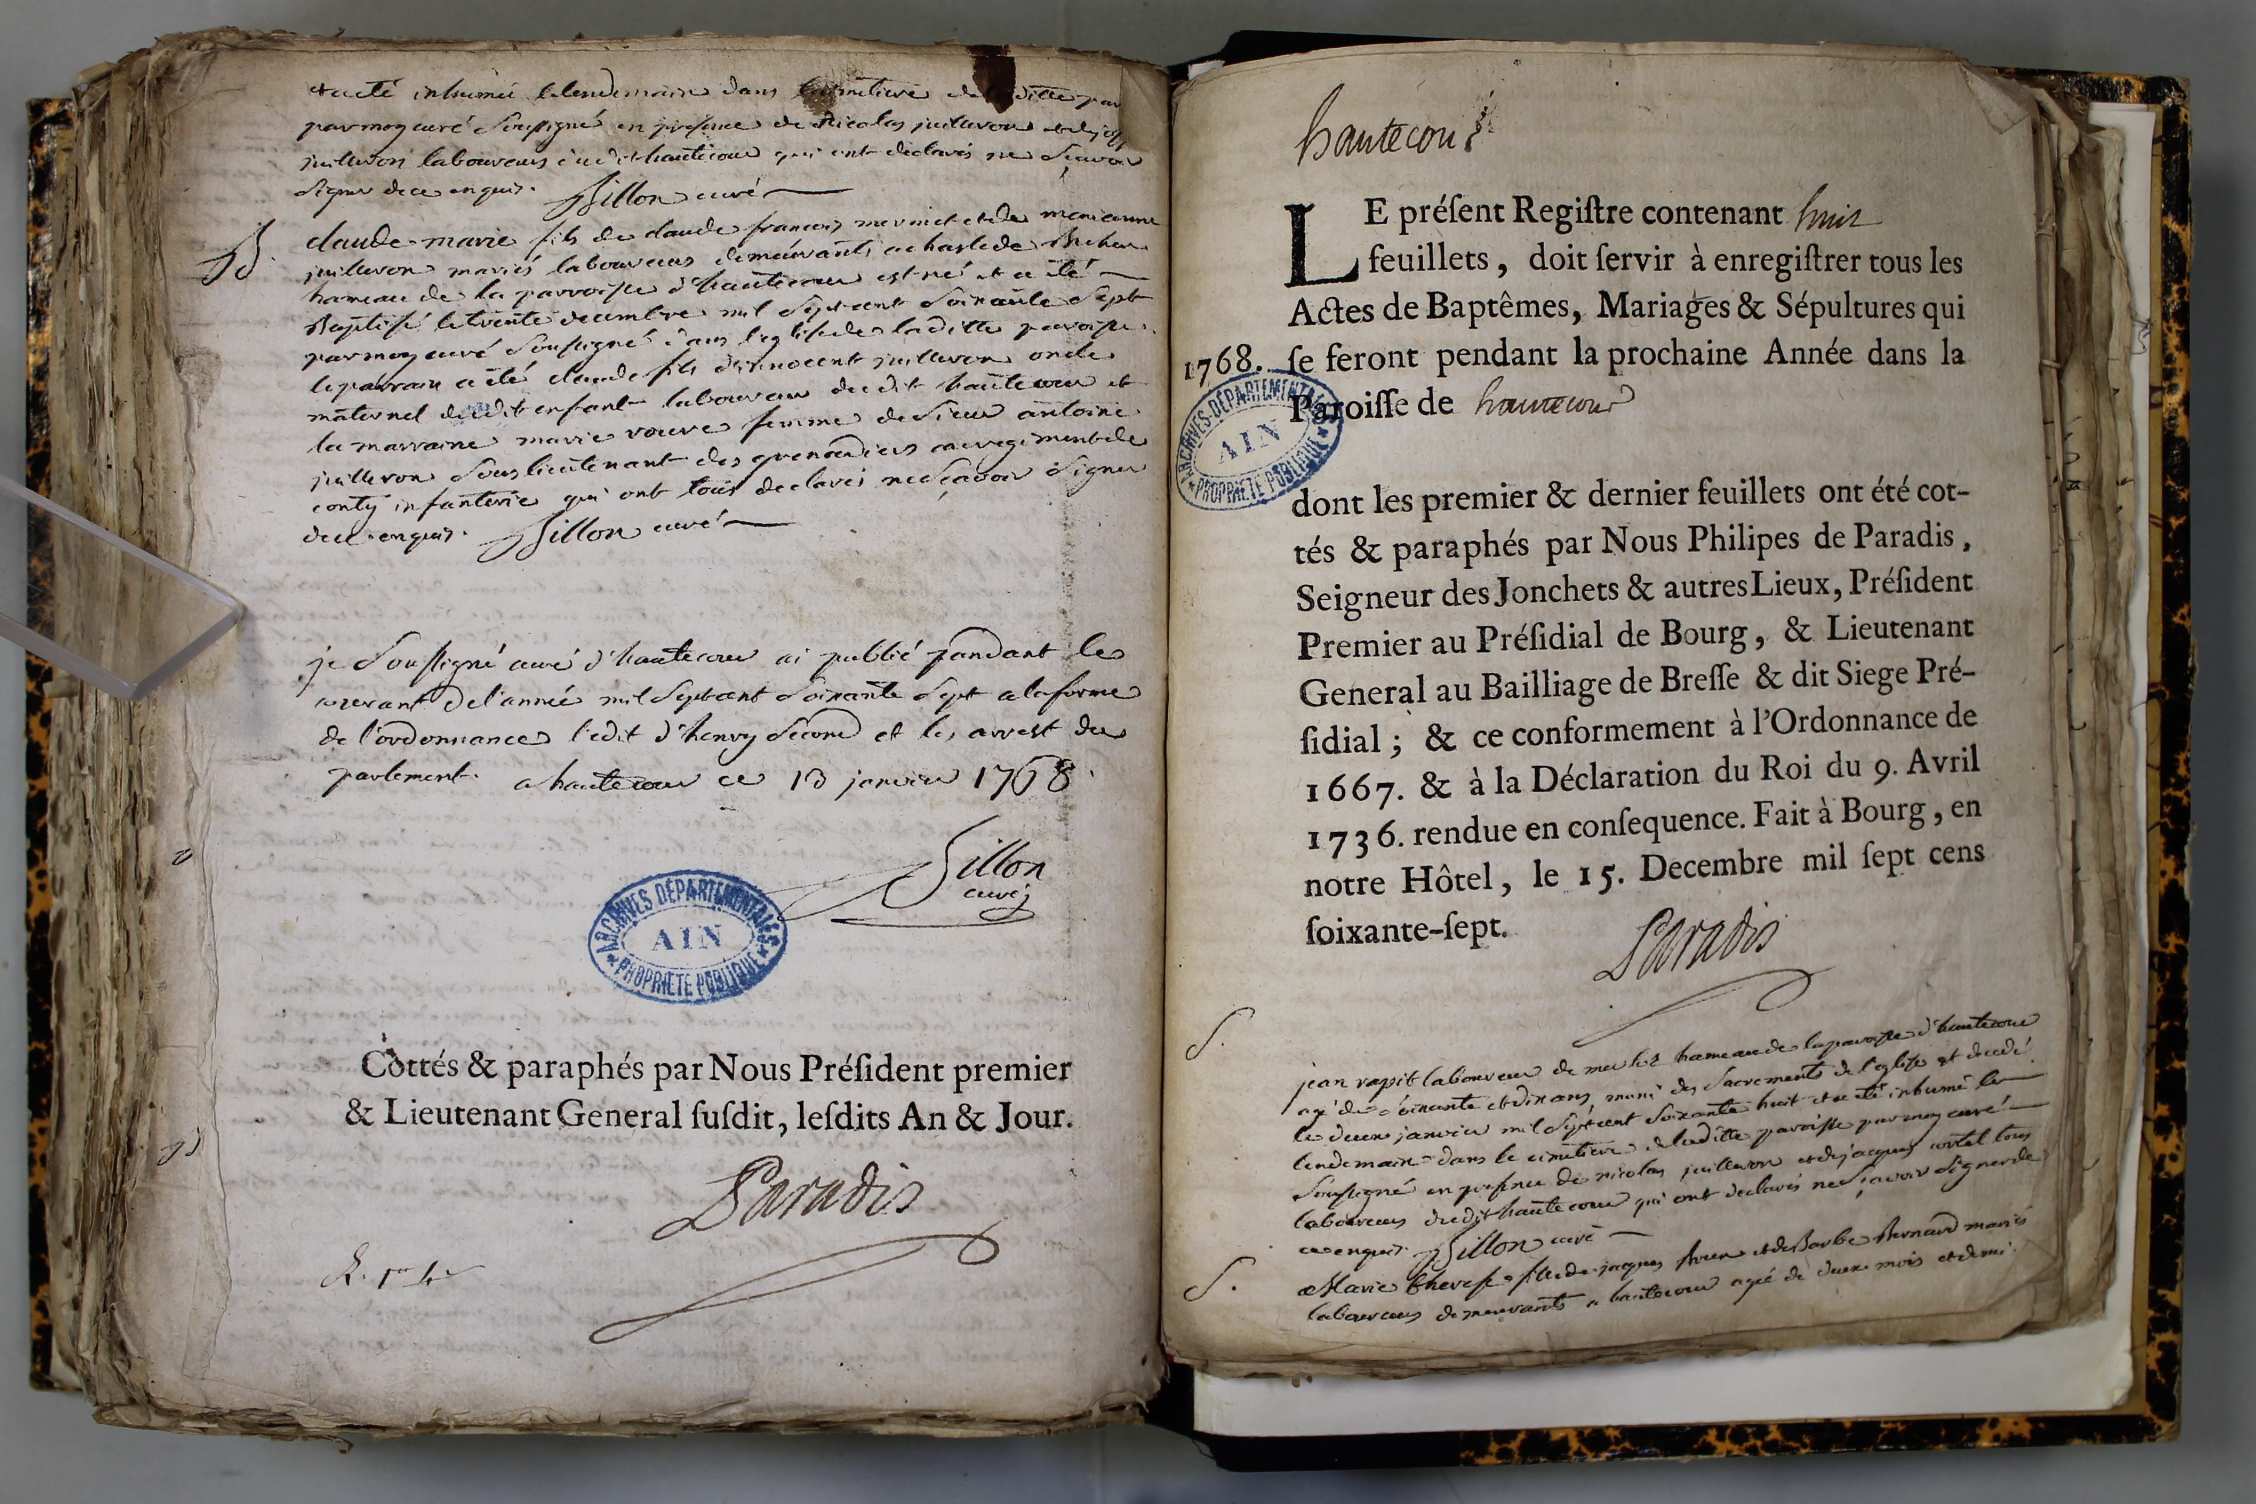 et a eté inhumée le lendemain dans le cimetiere de laditte par
par moy curé soussigné en presence de Nicolas juilleron et de
juilleron laboureurs dudit hautecour qui ont declarés ne sçavoir
signer de ce enquis. Sillon curé
B.
claude marie fils de claude francois mermet et de marianne
juilleron mariés laboureurs demeurants a
hameau de la parroisse d'hautecour est né et a été
Baptisé le trente decembre mil sept cent soixante sept
par moy curé soussigné dans l'eglise de laditte paroisse
le parrain a été claude fils d'innocent juilleron oncle
maternel dudit enfant laboureur dudit hautecour et
la marraine marie femme de sieur antoine
juilleron sous lieutenant des grenadiers au regiment de
conty infanterie qui ont tous declarés ne sçavoir signer
de ce enquis. Sillon curé
je soussigné curé d'hautecour ai publié pandant le
courant de l'année mil sept cent soixante sept a la forme
de l'ordonnance l'edit d'henry second et les arrest du
parlement. a hautecour ce 13 janvier 1768.
Sillon
curé
ARCHIVES DÉPARTEMENTALES
AIN
PROPRIETE PUBLIQUE
Cottés & paraphés par Nous Préſident premier
& Lieutenant General ſuſdit, leſdits An & Jour.
Paradis
hautecour
LE préſent Regiſtre contenant huit
feuillets, doit ſervir à enregiſtrer tous les
Actes de Baptêmes, Mariages & Sépultures qui
1768. ſe feront pendant la prochaine Année dans la
Paroiſſe de hautecour
ARCHIVES DÉPARTEMENTALES
AIN
PROPRIETE PUBLIQUE
dont les premier & dernier feuillets ont été cot-
tés & paraphés par Nous Philipes de Paradis,
Seigneur des Jonchets & autres Lieux, Préſident
Premier au Préſidial de Bourg, & Lieutenant
General au Bailliage de Breſſe & dit Siege Pré-
ſidial ; & ce conformement à l'Ordonnance de
1667. & à la Déclaration du Roi du 9. Avril
1736. rendue en conſequence. Fait à Bourg, en
notre Hôtel, le 15. Decembre mil ſept cens
ſoixante-ſept.
Paradis
S.
jean rapit laboureur de hameau de la paroisse d'hautecour
agé de soixante et dix ans, muni des sacrements de l'eglise est decedé
le deux janvier mil sept cent soixante huit et a eté inhumé le
lendemain dans le cimetiere de laditte paroisse par moy curé
soussigné en presence de nicolas juilleron et de jacques cortel tous
laboureurs dudit hautecour qui ont declarés ne sçavoir signer de
ce enquis. Sillon curé
S.
Marie therese fille de jacques et de Barbe Bernard mariés
laboureurs demeurants a hautecour agée de deux mois et demi